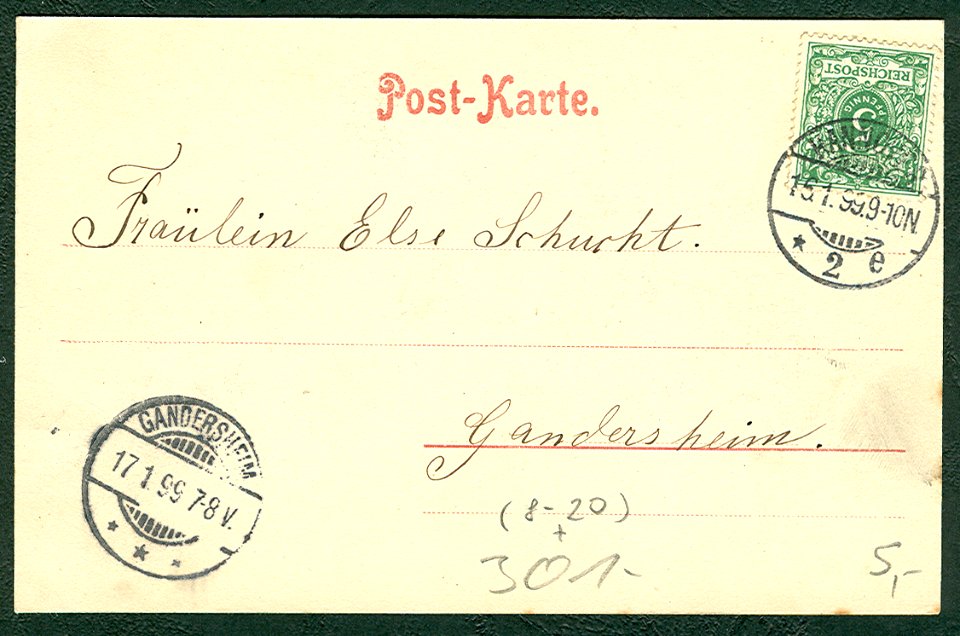 Post-Karte.
REICHSPOST
5
PFENNIG
Fräulein Else Schucht.
9-10N.
* 2 e
Gandersheim.
GANDERSHEIM
17 1 99 7-8 V.
* * *
(8-20)
+
301-
5,-